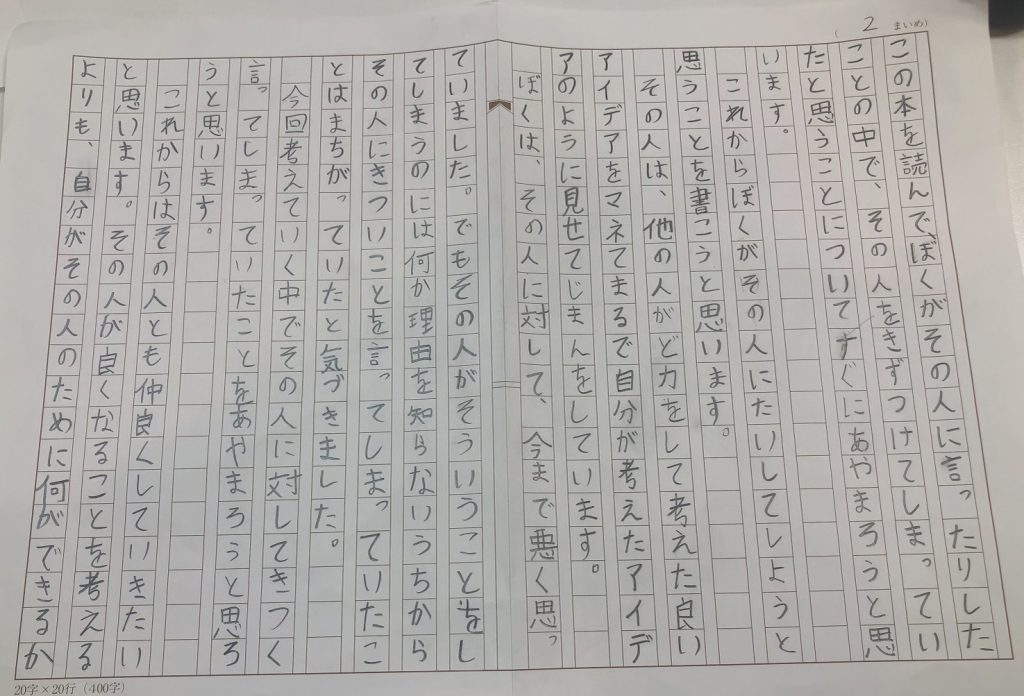 2 まいめ
この本を読んで、ぼくがその人に言ったりした
ことの中で、その人をきずつけてしまってい
たと思うことについてすぐにあやまろうと思
います。
これからぼくがその人にたいしてしようと
思うことを書こうと思います。
その人は、他の人がど力をして考えた良い
アイデアをマネてまるで自分が考えたアイデ
アのように見せてじまんをしています。
ぼくは、その人に対して、今まで悪く思っ
ていました。でもその人がそういうことをし
てしまうのには何か理由を知らないうちから
その人にきついことを言ってしまっていたこ
とはまちがっていたと気づきました。
今回考えていく中でその人に対してきつく
言ってしまっていたことをあやまろうと思ろ
うと思います。
これからはその人とも仲良くしていきたい
と思います。その人が良くなることを考える
よりも、自分がその人のために何ができるか
20字×20行(400字)